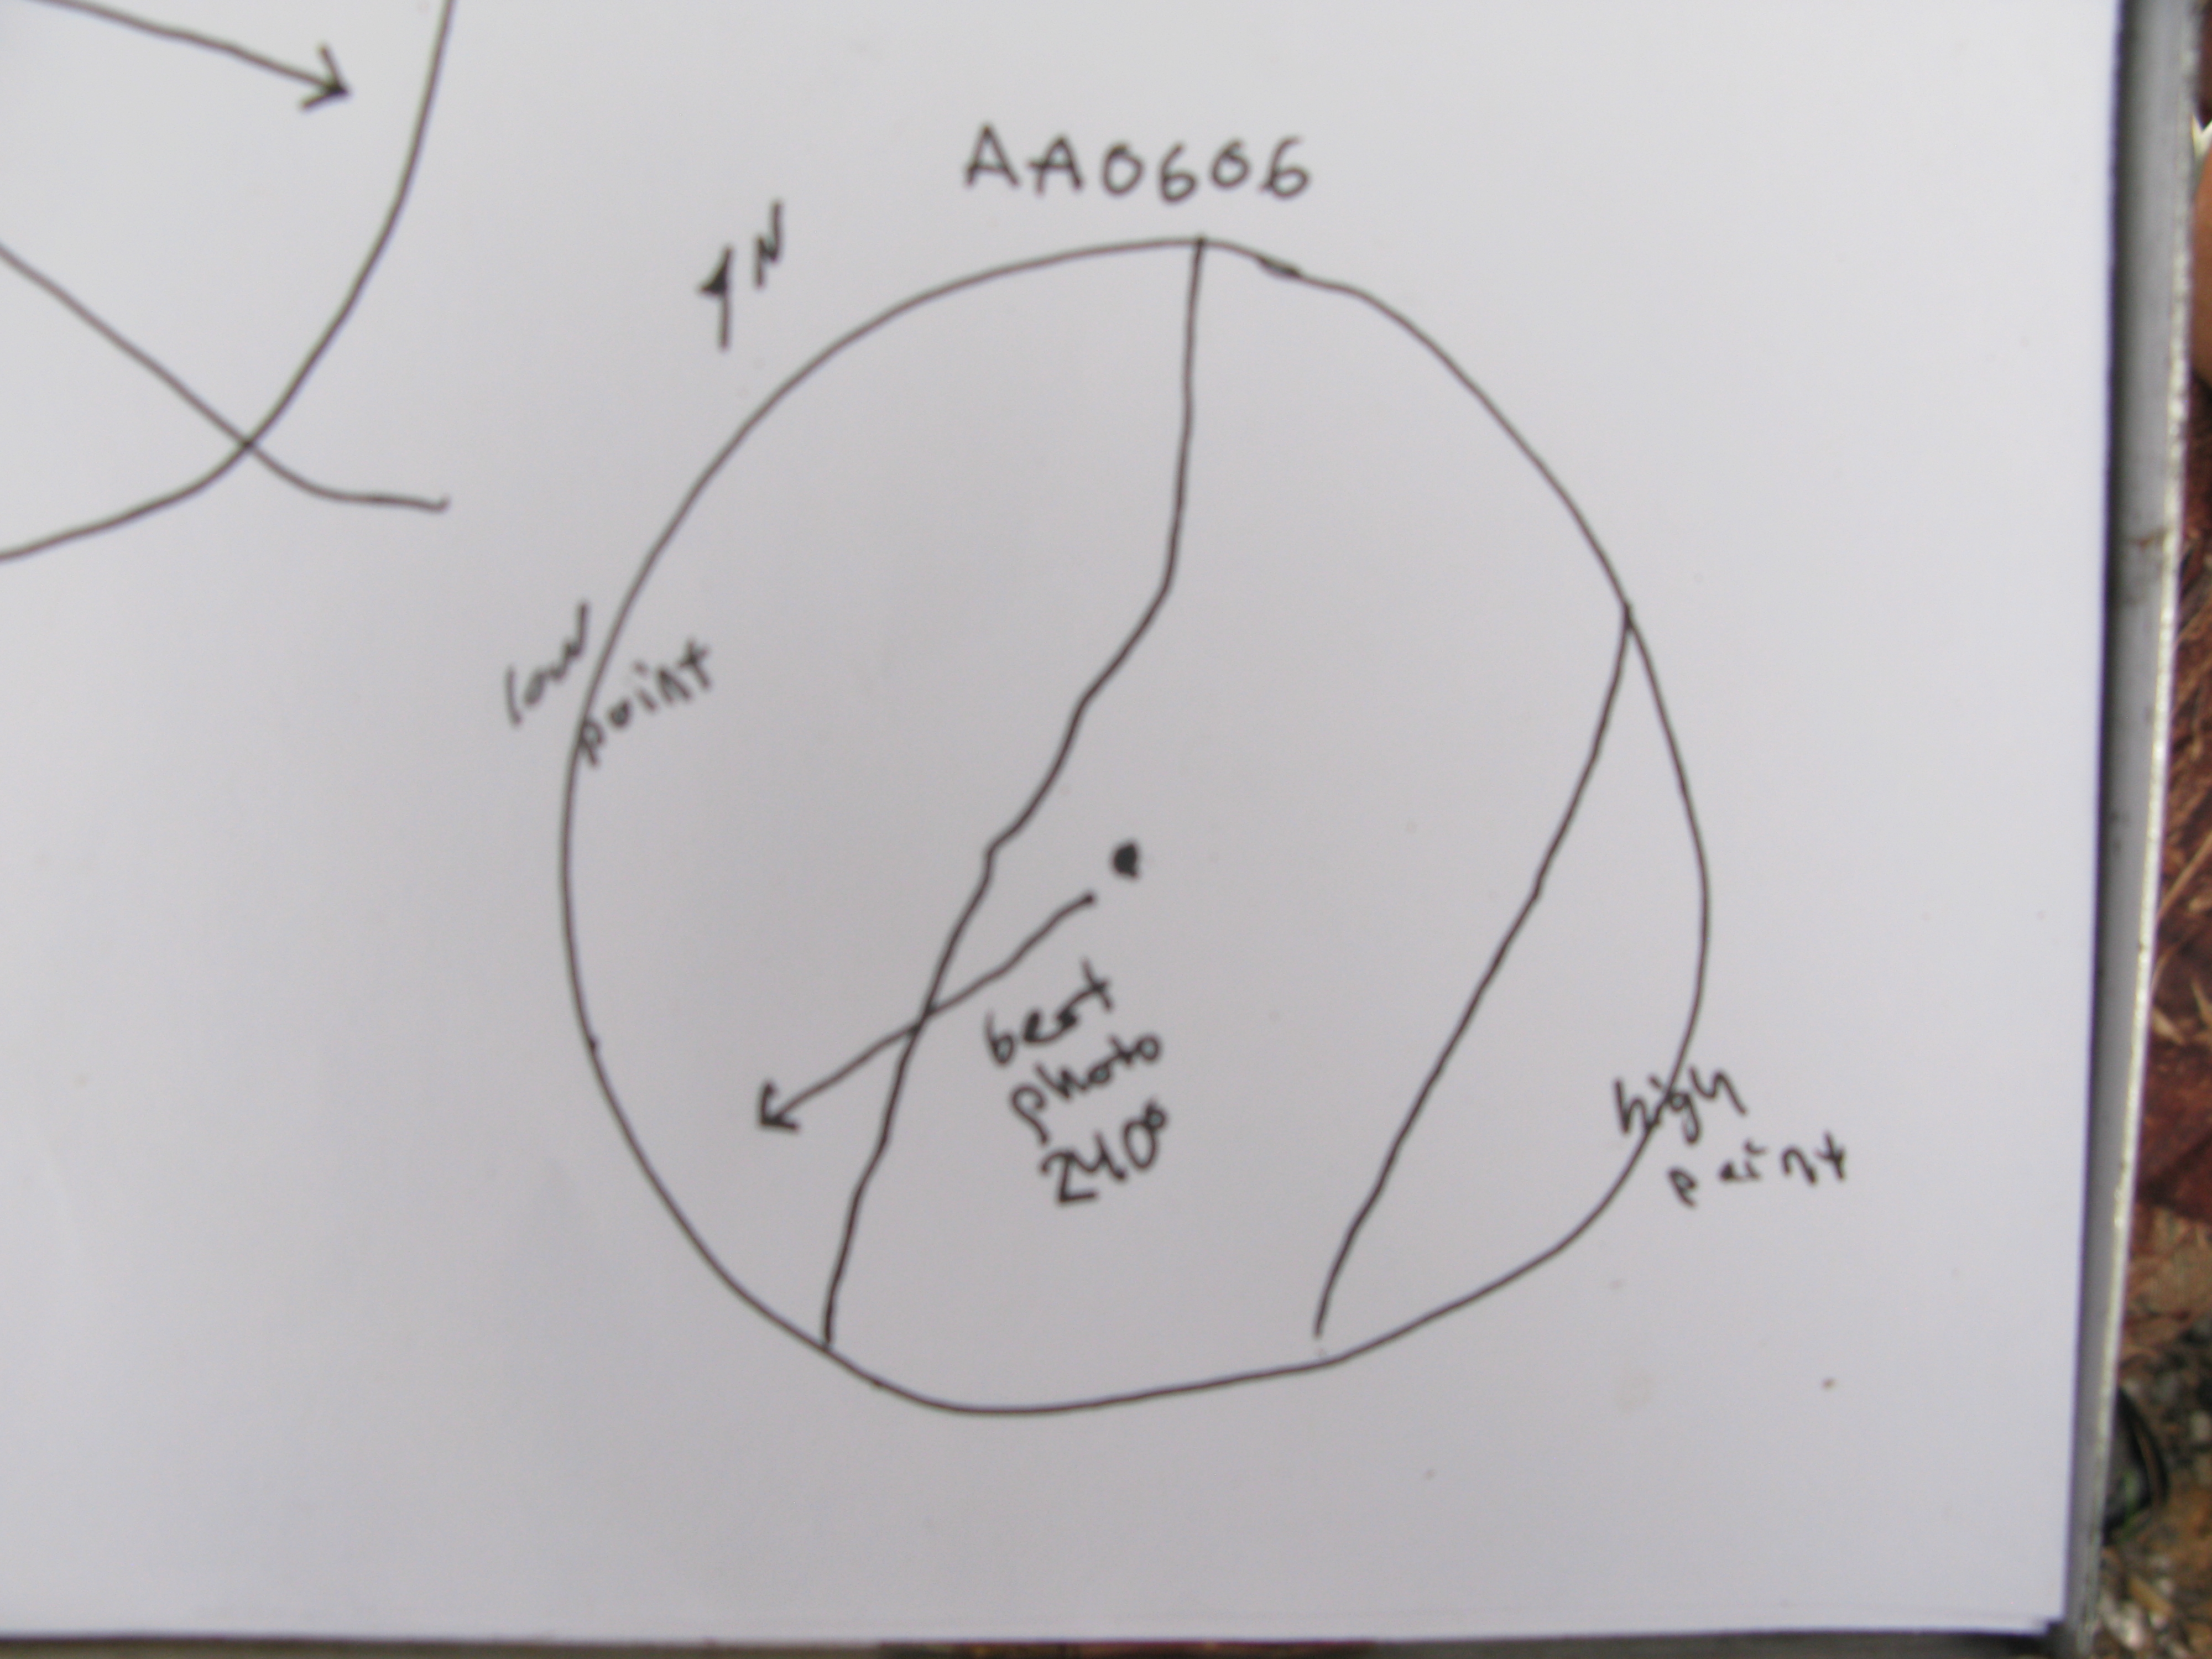 AA0606
N
low
point
best
photo
240°
high
point